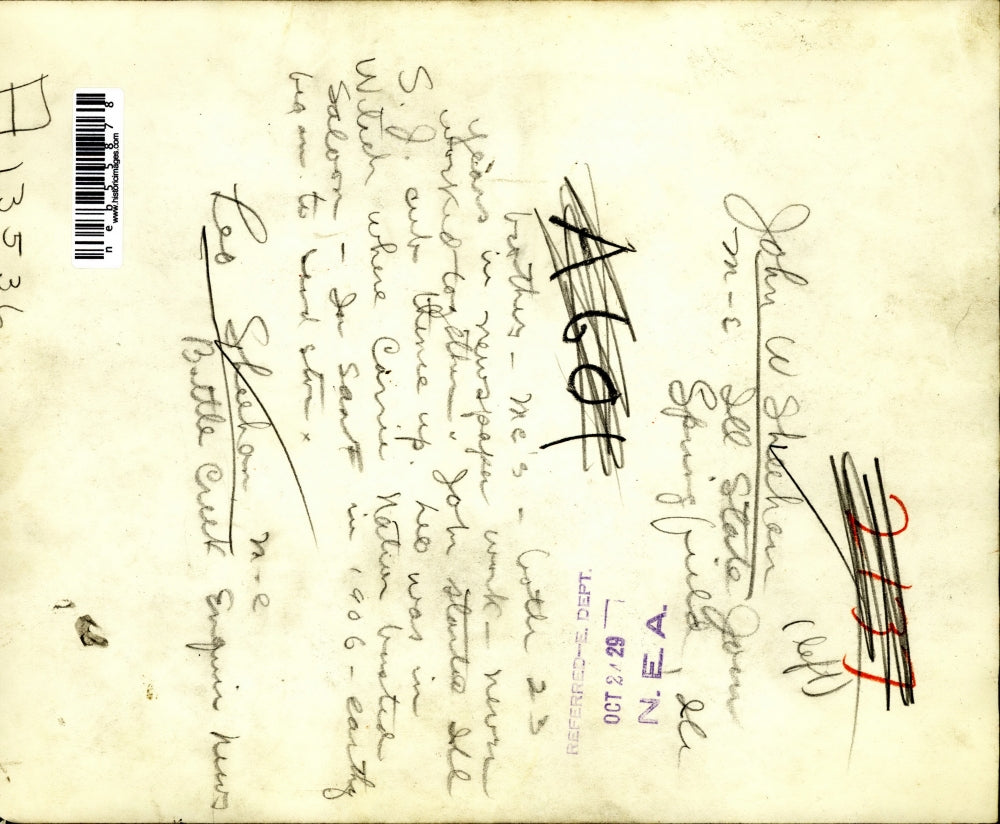 John W Sheehan (left)
m-e Ill State Journ
Springfield, Ill
213
A601
brothers - Me's - both 23
years in newspaper work - never
worked together. John started Ill
S. J. cub thence up. Leo was in
Witch where Carrie Nation busted
Saloon - In San F in 1906 - earthq
began to send stor.
Leo Sheehan m-e
Battle Creek Enquir News
REFERRED-E. DEPT.
OCT 2 29
N. E. A.
neb55878
www.historicimages.com
A 13536